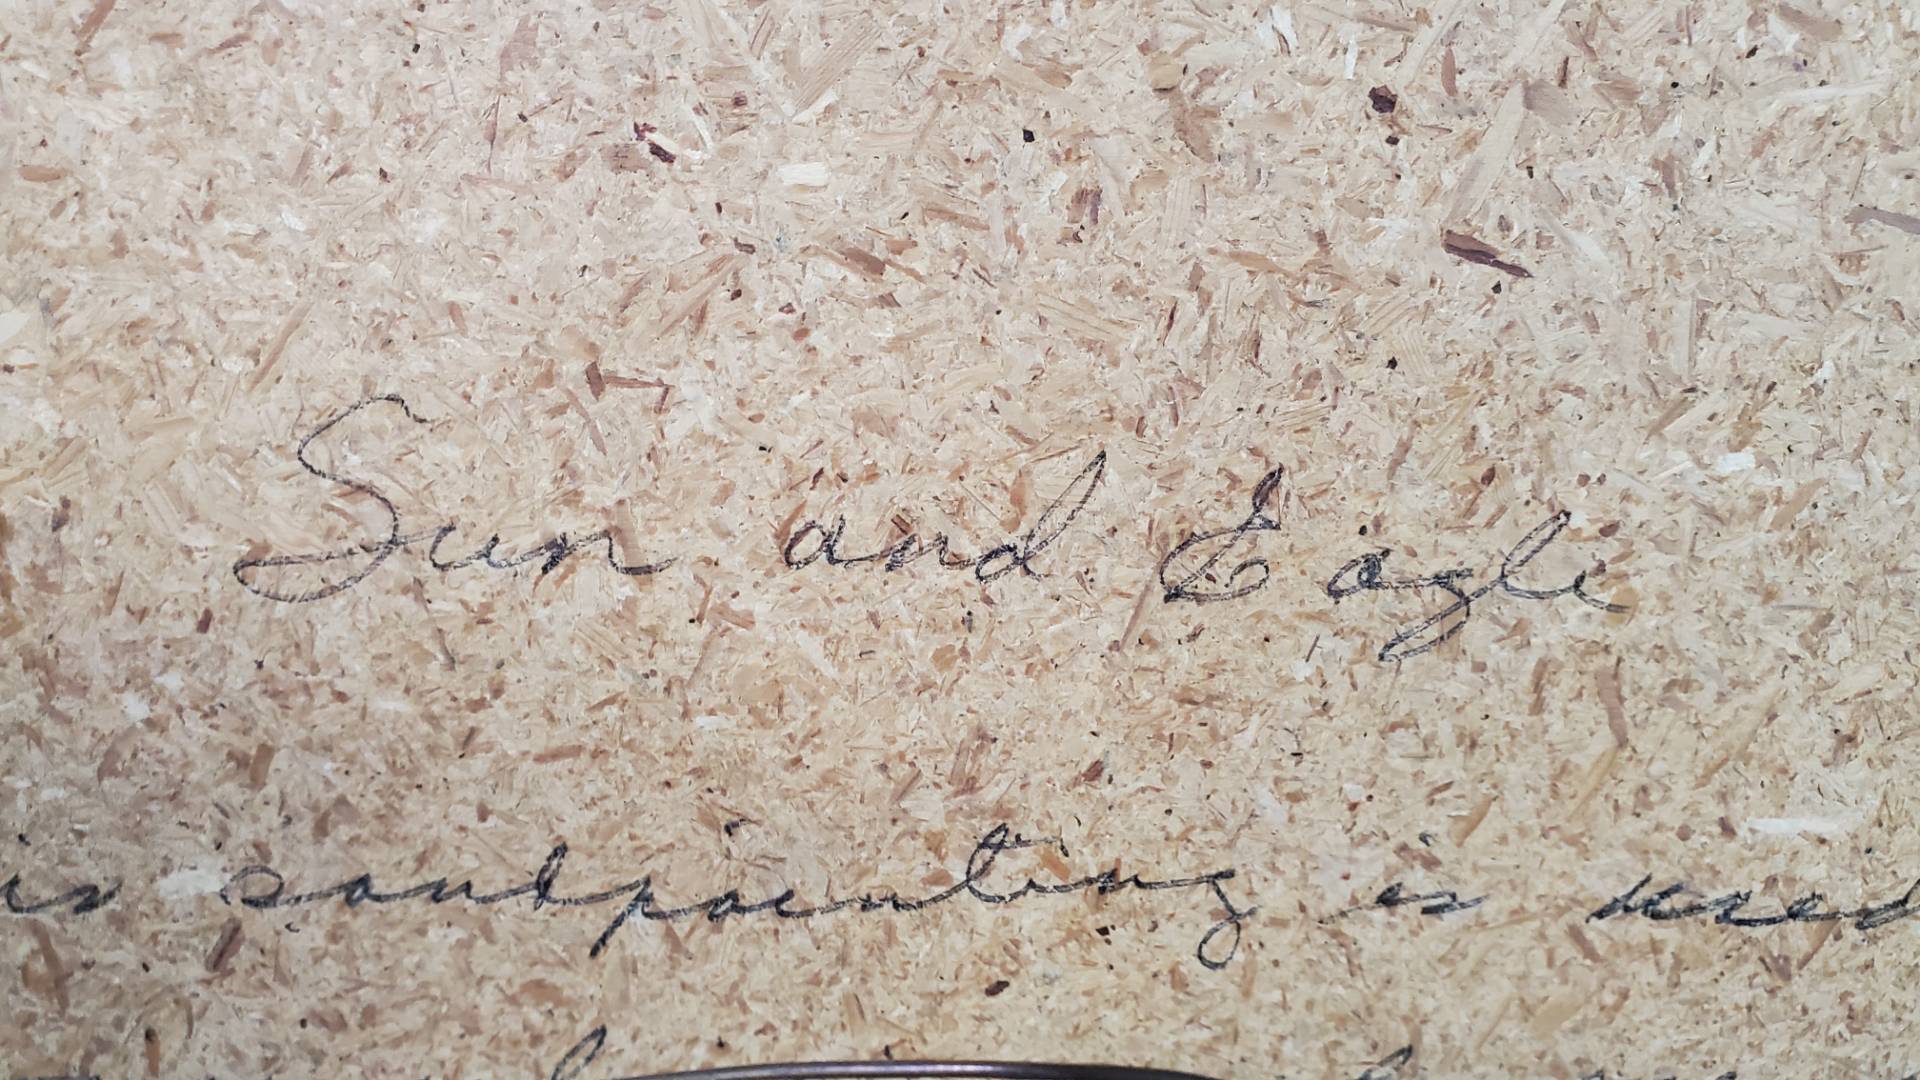 Sun and Eagle
is sandpainting is used